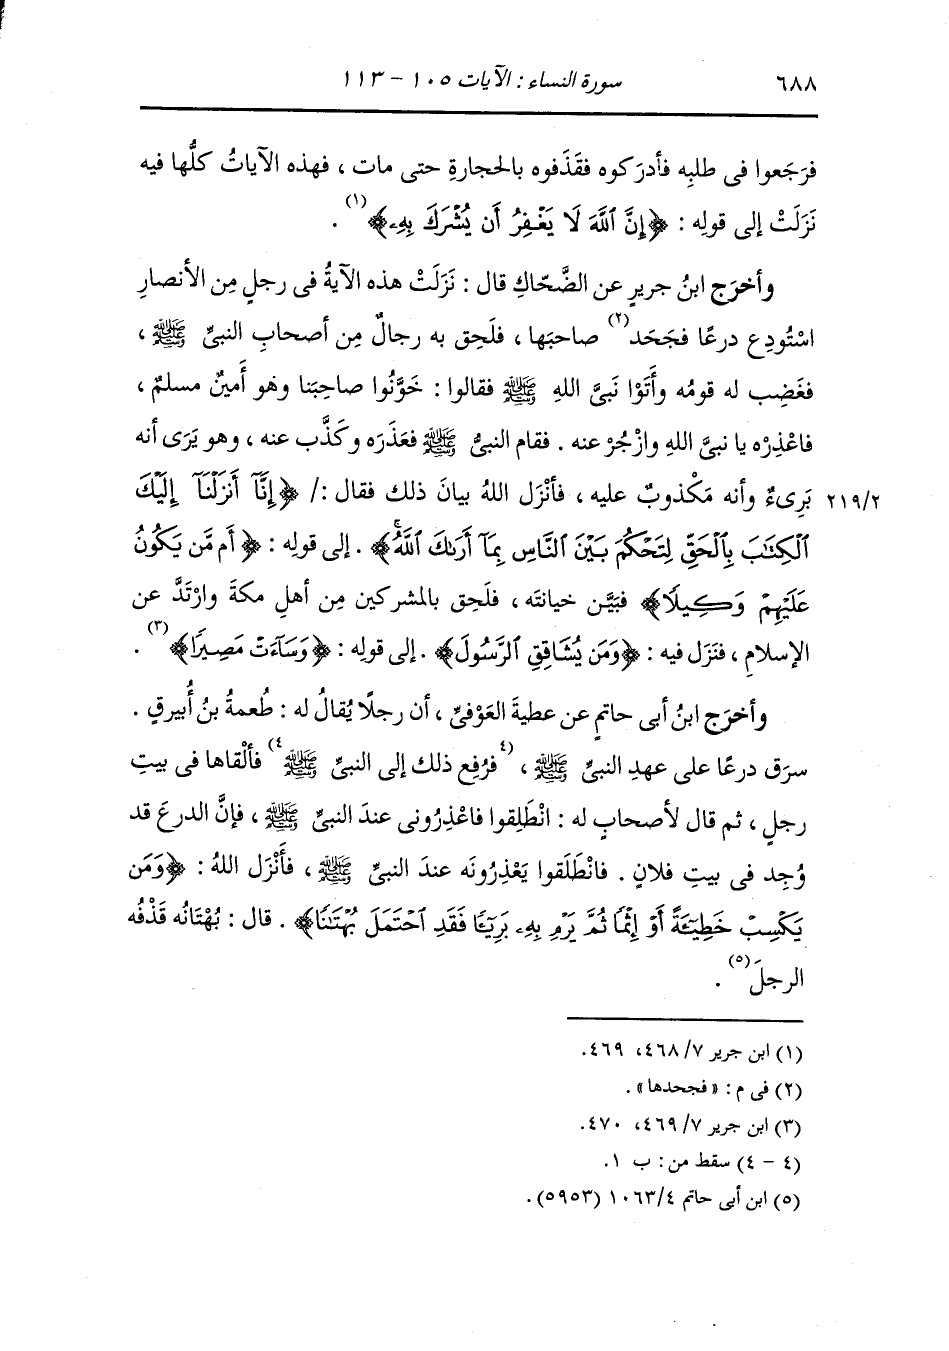 ٦٨٨ سورة النساء : الآيات ١٠٥ - ١١٣
فرَجَعوا فى طلبِه فأدرَكوه فقَذَفوه بالحجارةِ حتى مات ، فهذه الآياتُ كلُّها فيه
نَزَلَتْ إلى قولِه : ﴿إِنَّ ٱللَّهَ لَا يَغْفِرُ أَن يُشْرَكَ بِهِۦ﴾(١) .
وأخرَج ابنُ جريرٍ عن الضَّحّاكِ قال : نَزَلَتْ هذه الآيةُ فى رجلٍ مِن الأنصارِ
اسْتُودِع درعًا فجَحَد(٢) صاحبَها ، فلَحِق به رجالٌ مِن أصحابِ النبىِّ ﷺ ،
فغَضِب له قومُه وأَتَوْا نَبىَّ اللهِ ﷺ فقالوا : خَوَّنُوا صاحِبَنا وهو أَمينٌ مسلمٌ ،
فاعْذِرْه يا نبىَّ اللهِ وازْجُرْ عنه . فقام النبىُّ ﷺ فعَذَرَه وكَذَّب عنه ، وهو يَرَى أنه
٢١٩/٢ بَرِىءٌ وأنه مَكْذوبٌ عليه ، فأنْزَل اللهُ بيانَ ذلك فقال :/ ﴿إِنَّآ أَنزَلْنَآ إِلَيْكَ
ٱلْكِتَٰبَ بِٱلْحَقِّ لِتَحْكُمَ بَيْنَ ٱلنَّاسِ بِمَآ أَرَىٰكَ ٱللَّهُۚ﴾ . إلى قولِه : ﴿أَم مَّن يَكُونُ
عَلَيْهِمْ وَكِيلًا﴾ فبَيَّن خيانتَه ، فلَحِق بالمشركين مِن أهلِ مكةَ وارْتَدَّ عن
الإسلامِ ، فنَزَل فيه : ﴿وَمَن يُشَاقِقِ ٱلرَّسُولَ﴾ . إلى قولِه : ﴿وَسَآءَتْ مَصِيرًا﴾(٣) .
وأخرَج ابنُ أبى حاتمٍ عن عطيةَ العَوْفىِّ ، أن رجلًا يُقالُ له : طُعمةُ بنُ أُبيرقٍ .
سرَق درعًا على عهدِ النبىِّ ﷺ ، (٤فرُفِع ذلك إلى النبىِّ ﷺ٤) فألْقاها فى بيتِ
رجلٍ ، ثم قال لأصحابٍ له : انْطَلِقوا فاعْذِرُونى عندَ النبىِّ ﷺ ، فإنَّ الدرعَ قد
وُجِد فى بيتِ فلان . فانْطَلَقوا يَعْذِرُونَه عندَ النبىِّ ﷺ ، فأَنْزَل اللهُ : ﴿وَمَن
يَكْسِبْ خَطِيٓـَٔةً أَوْ إِثْمًا ثُمَّ يَرْمِ بِهِۦ بَرِيٓـًٔا فَقَدِ ٱحْتَمَلَ بُهْتَٰنًا﴾ . قال : بُهْتَانُه قَذْفُه
الرجلَ(٥) .
(١) ابن جرير ٤٦٨/٧، ٤٦٩.
(٢) فى م : « فجحدها » .
(٣) ابن جرير ٤٦٩/٧، ٤٧٠.
(٤ - ٤) سقط من : ب ١.
(٥) ابن أبى حاتم ١٠٦٣/٤ (٥٩٥٣) .